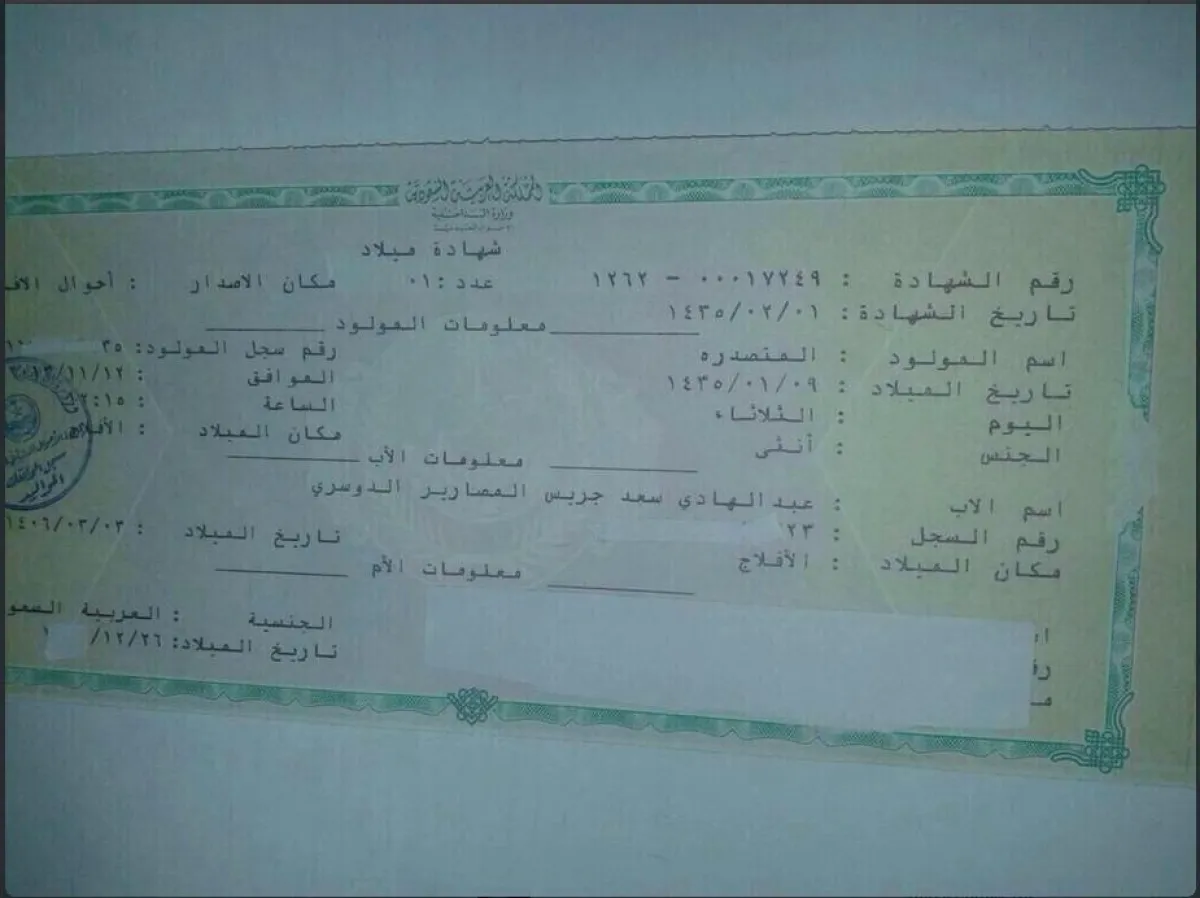 المملكة العربية السعودية
وزارة الداخلية
شهادة ميلاد
رقم الشهادة : ٠٠٠١٧٢٤٩ - ١٢٦٢ عدد : ٠١ مكان الاصدار : أحوال
تاريخ الشهادة : ١٤٣٥/٠٢/٠١
معلومات المولود
اسم المولود : المتصدره رقم سجل المولود: ٣٥
تاريخ الميلاد : ١٤٣٥/٠١/٠٩ الموافق : ٢٠١٣/١١/١٢
اليوم : الثلاثاء الساعة : ٢:١٥
الجنس : أنثى مكان الميلاد : الأفلاج
معلومات الأب
اسم الاب : عبدالهادي سعد جريس المصارير الدوسري
رقم السجل : ٢٣ تاريخ الميلاد : ١٤٠٦/٠٣/٠٣
مكان الميلاد : الأفلاج
معلومات الأم
الجنسية : العربية السعو
تاريخ الميلاد: ١ /١٢/٢٦